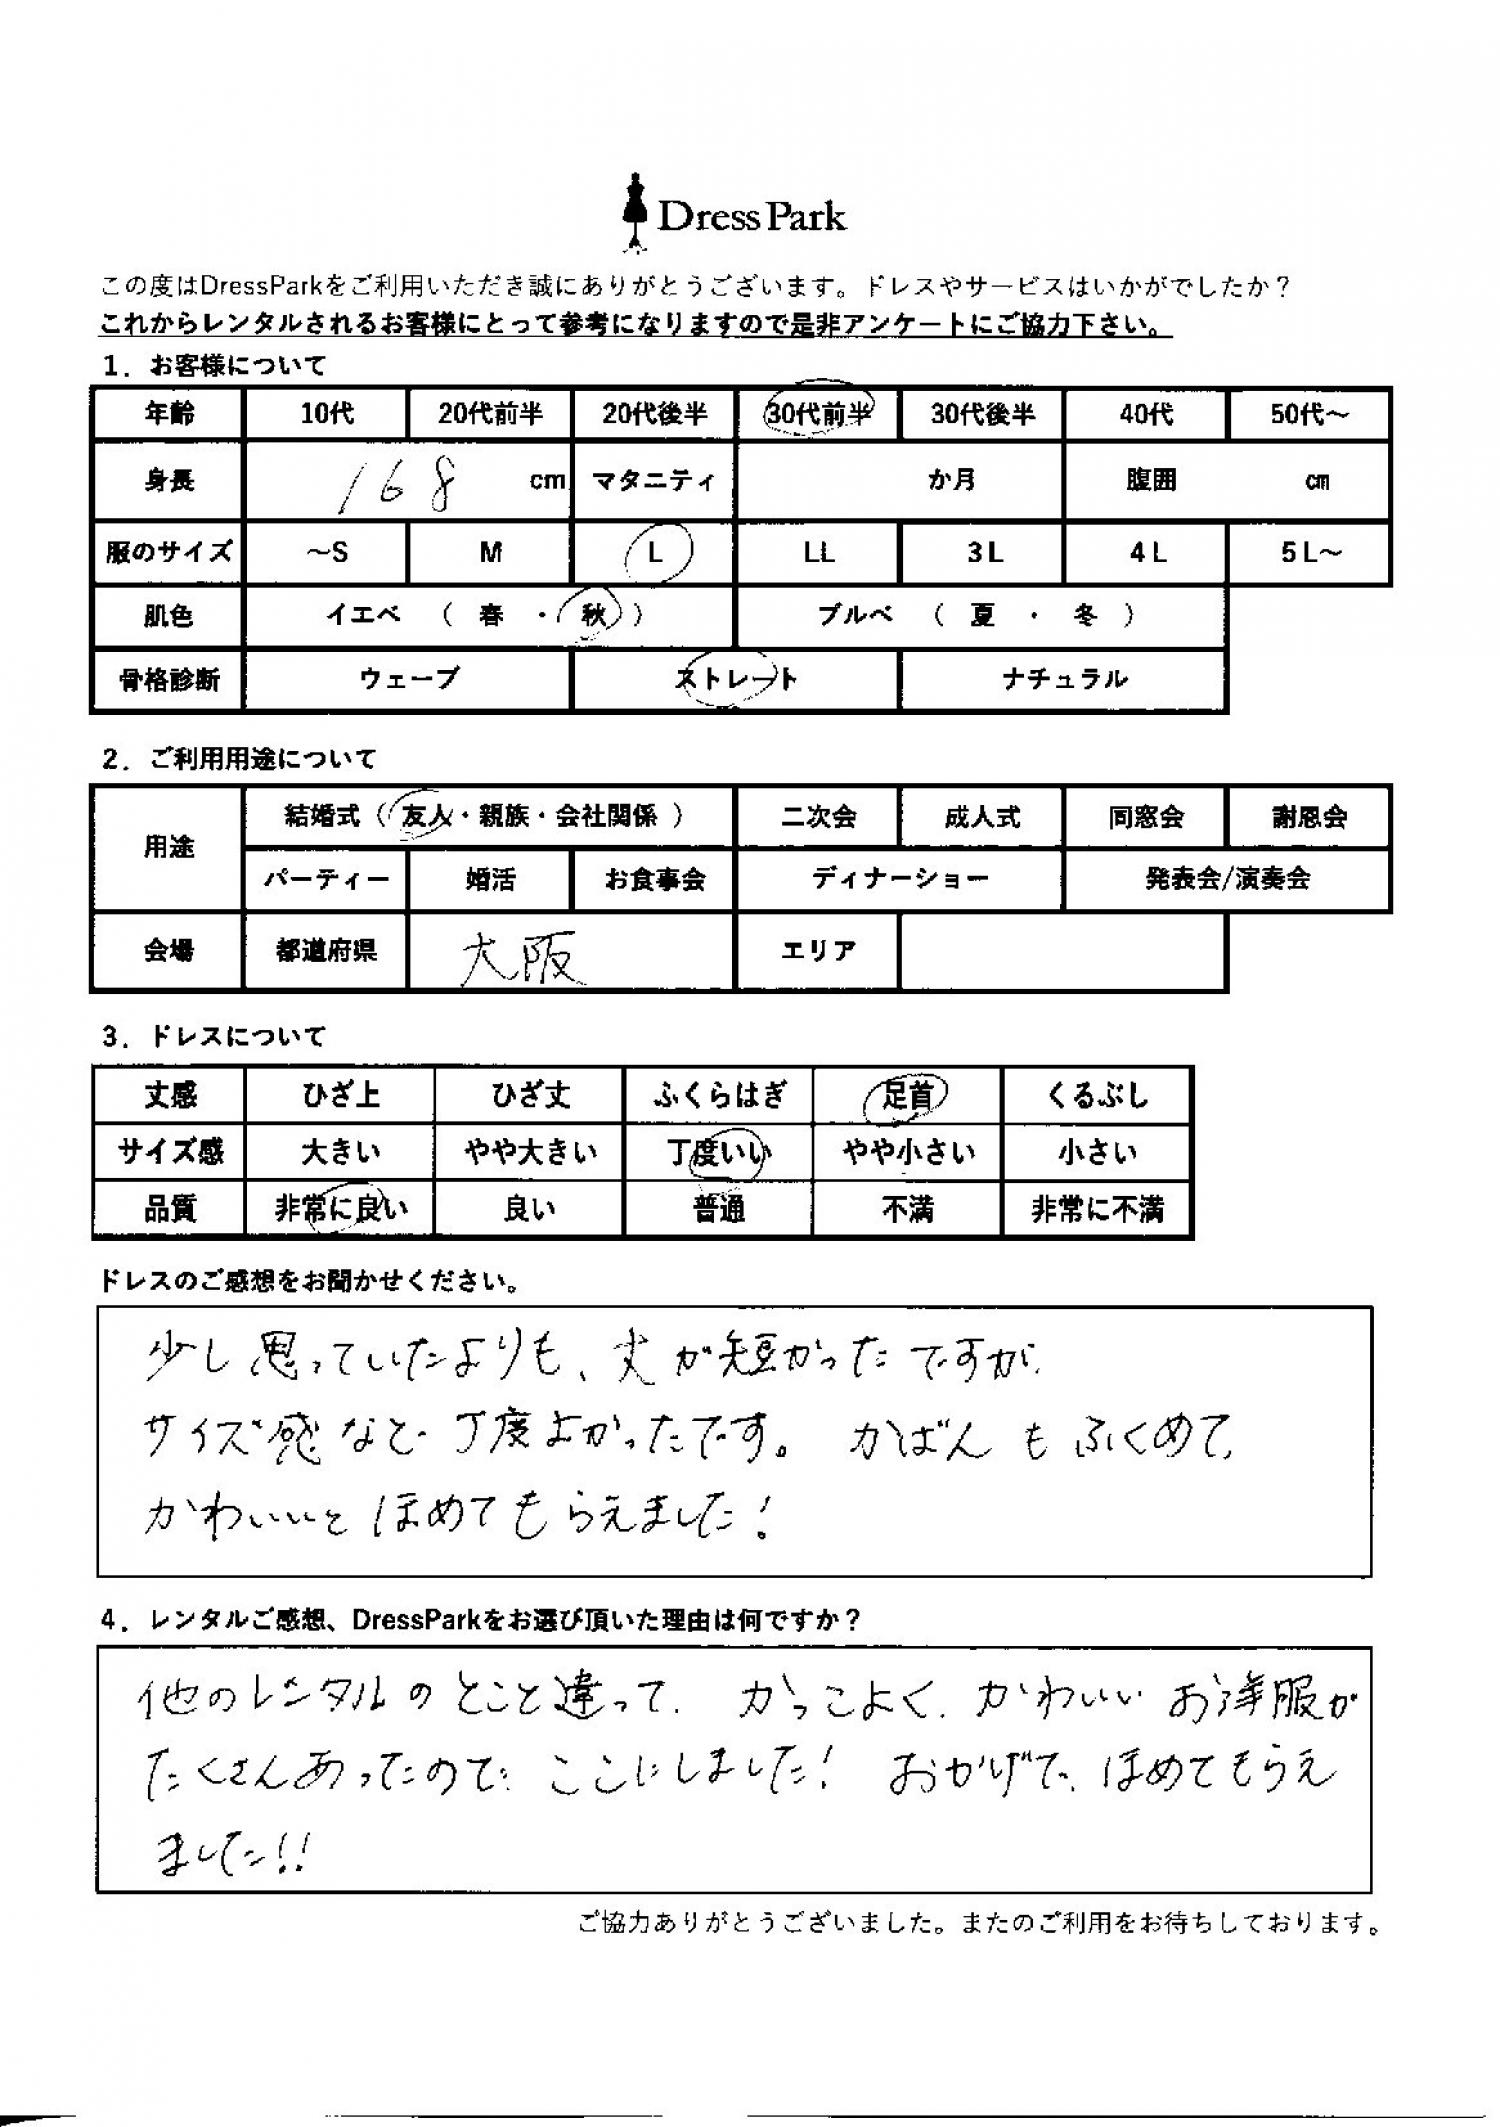 Dress Park
この度はDressParkをご利用いただき誠にありがとうございます。ドレスやサービスはいかがでしたか？
これからレンタルされるお客様にとって参考になりますので是非アンケートにご協力下さい。
1．お客様について
年齢 10代 20代前半 20代後半 30代前半 30代後半 40代 50代～
身長 168 cm マタニティ か月 腹囲 ㎝
服のサイズ ～S M L LL 3L 4L 5L～
肌色 イエベ （ 春 ・ 秋 ） ブルベ （ 夏 ・ 冬 ）
骨格診断 ウェーブ ストレート ナチュラル
2．ご利用用途について
用途 結婚式（ 友人・親族・会社関係 ） 二次会 成人式 同窓会 謝恩会
パーティー 婚活 お食事会 ディナーショー 発表会/演奏会
会場 都道府県 大阪 エリア
3．ドレスについて
丈感 ひざ上 ひざ丈 ふくらはぎ 足首 くるぶし
サイズ感 大きい やや大きい 丁度いい やや小さい 小さい
品質 非常に良い 良い 普通 不満 非常に不満
ドレスのご感想をお聞かせください。
少し思っていたよりも、丈が短かったですが、
サイズ感など丁度よかったです。 かばんもふくめて、
かわいいとほめてもらえました！
4．レンタルご感想、DressParkをお選び頂いた理由は何ですか？
他のレンタルのとこと違って、かっこよく、かわいいお洋服が
たくさんあったので、ここにしました！ おかげで、ほめてもらえ
ました!!
ご協力ありがとうございました。またのご利用をお待ちしております。